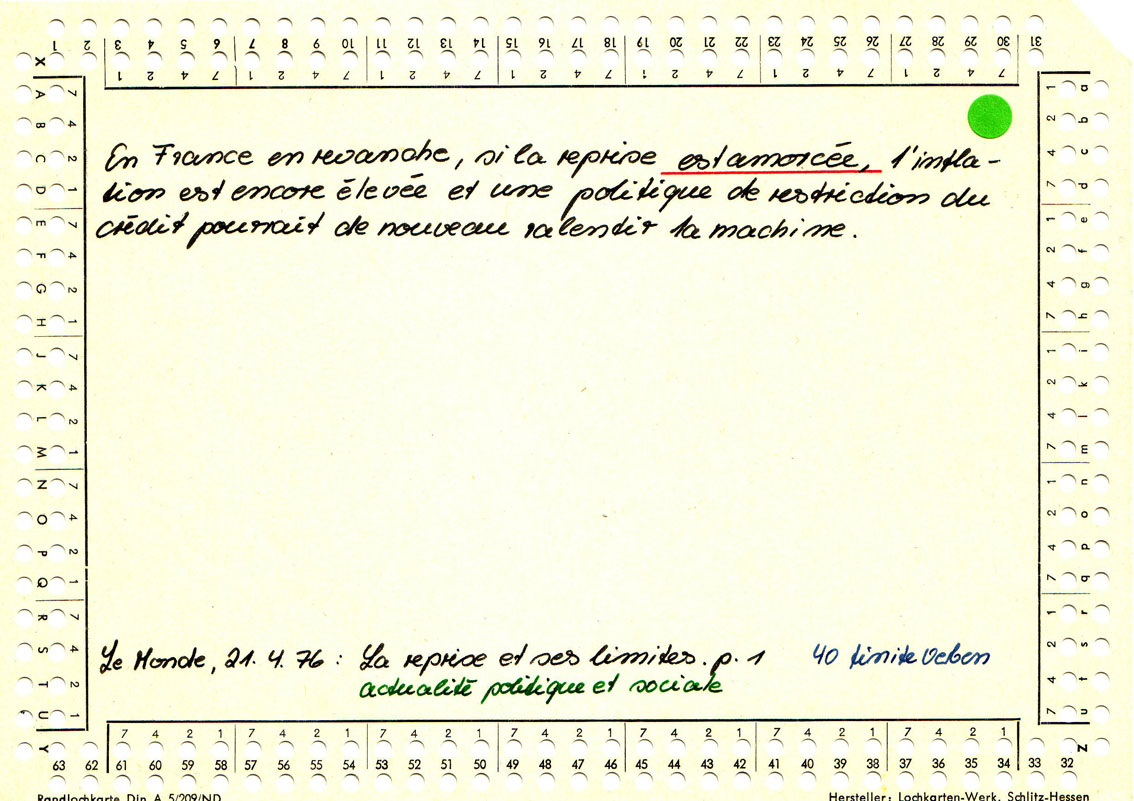 1 2 3 4 5 6 7 8 9 10 11 12 13 14 15 16 17 18 19 20 21 22 23 24 25 26 27 28 29 30 31
1 2 4 7 1 2 4 7 1 2 4 7 1 2 4 7 1 2 4 7 1 2 4 7 1 2 4 7
X
A 7
B 4
C 2
D 1
E 7
F 4
G 2
H 1
J 7
K 4
L 2
M 1
N 7
O 4
P 2
Q 1
R 7
S 4
T 2
U 1
Y
En France en revanche, si la reprise est amorcée, l'infla-
tion est encore élevée et une politique de restriction du
crédit pourrait de nouveau ralentir la machine.
Le Monde, 21. 4. 76 : La reprise et ses limites. p. 1 40 finite Verben
actualité politique et sociale
1 a
2 b
4 c
7 d
1 e
2 f
4 g
7 h
1 i
2 k
4 l
7 m
1 n
2 o
4 p
7 q
1 r
2 s
4 t
7 u
Z
7 4 2 1 7 4 2 1 7 4 2 1 7 4 2 1 7 4 2 1 7 4 2 1 7 4 2 1
63 62 61 60 59 58 57 56 55 54 53 52 51 50 49 48 47 46 45 44 43 42 41 40 39 38 37 36 35 34 33 32
Randlochkarte Din A 5/209/ND Hersteller: Lochkarten-Werk, Schlitz-Hessen